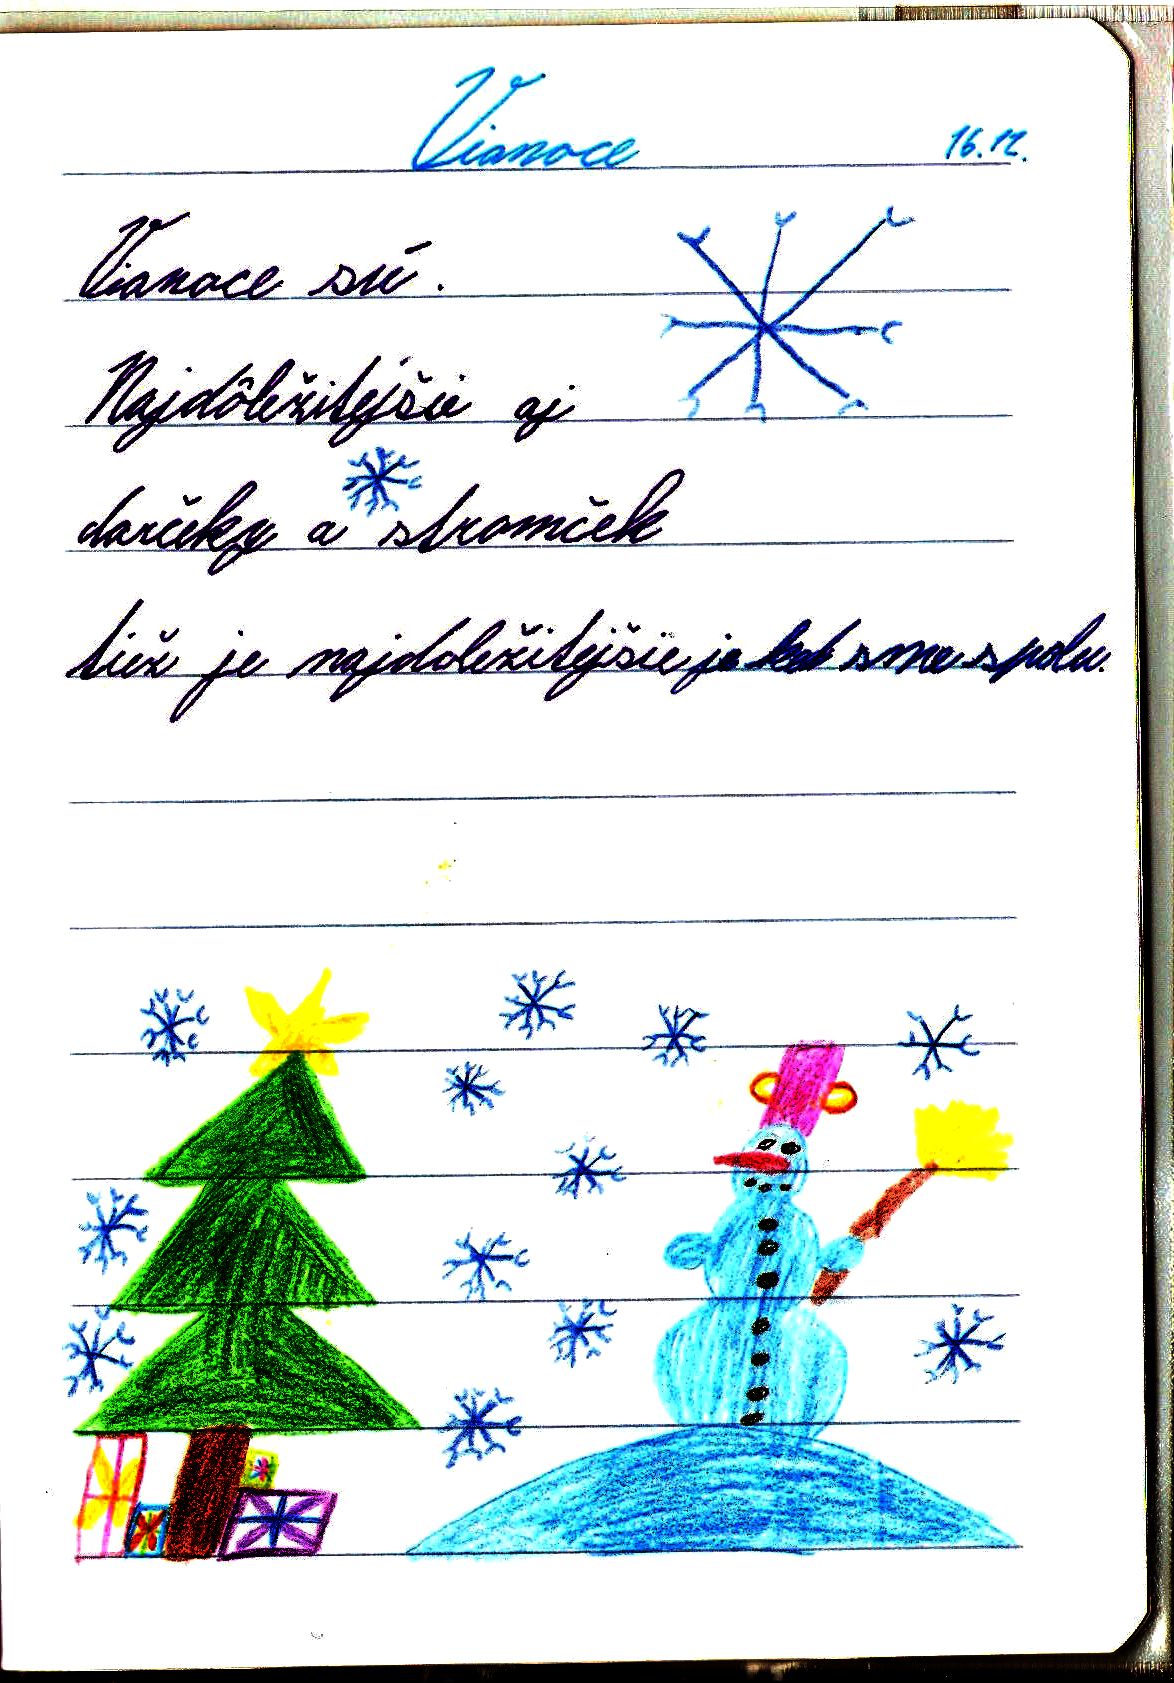 Vianoce
16.12.
Vianoce sú.
Najdôležitejšie aj
darčeky a stromček
tiež je najdoležitejšie je kat sme spolu.